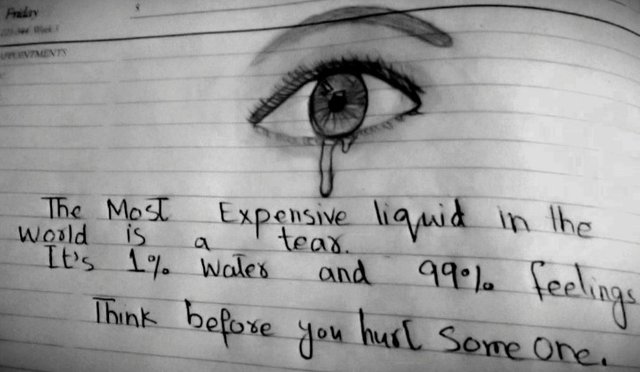 Friday
APPOINTMENTS
The Most Expensive liquid in the
world is a tear.
It's 1% water and 99% feelings
Think before you hurt someone.